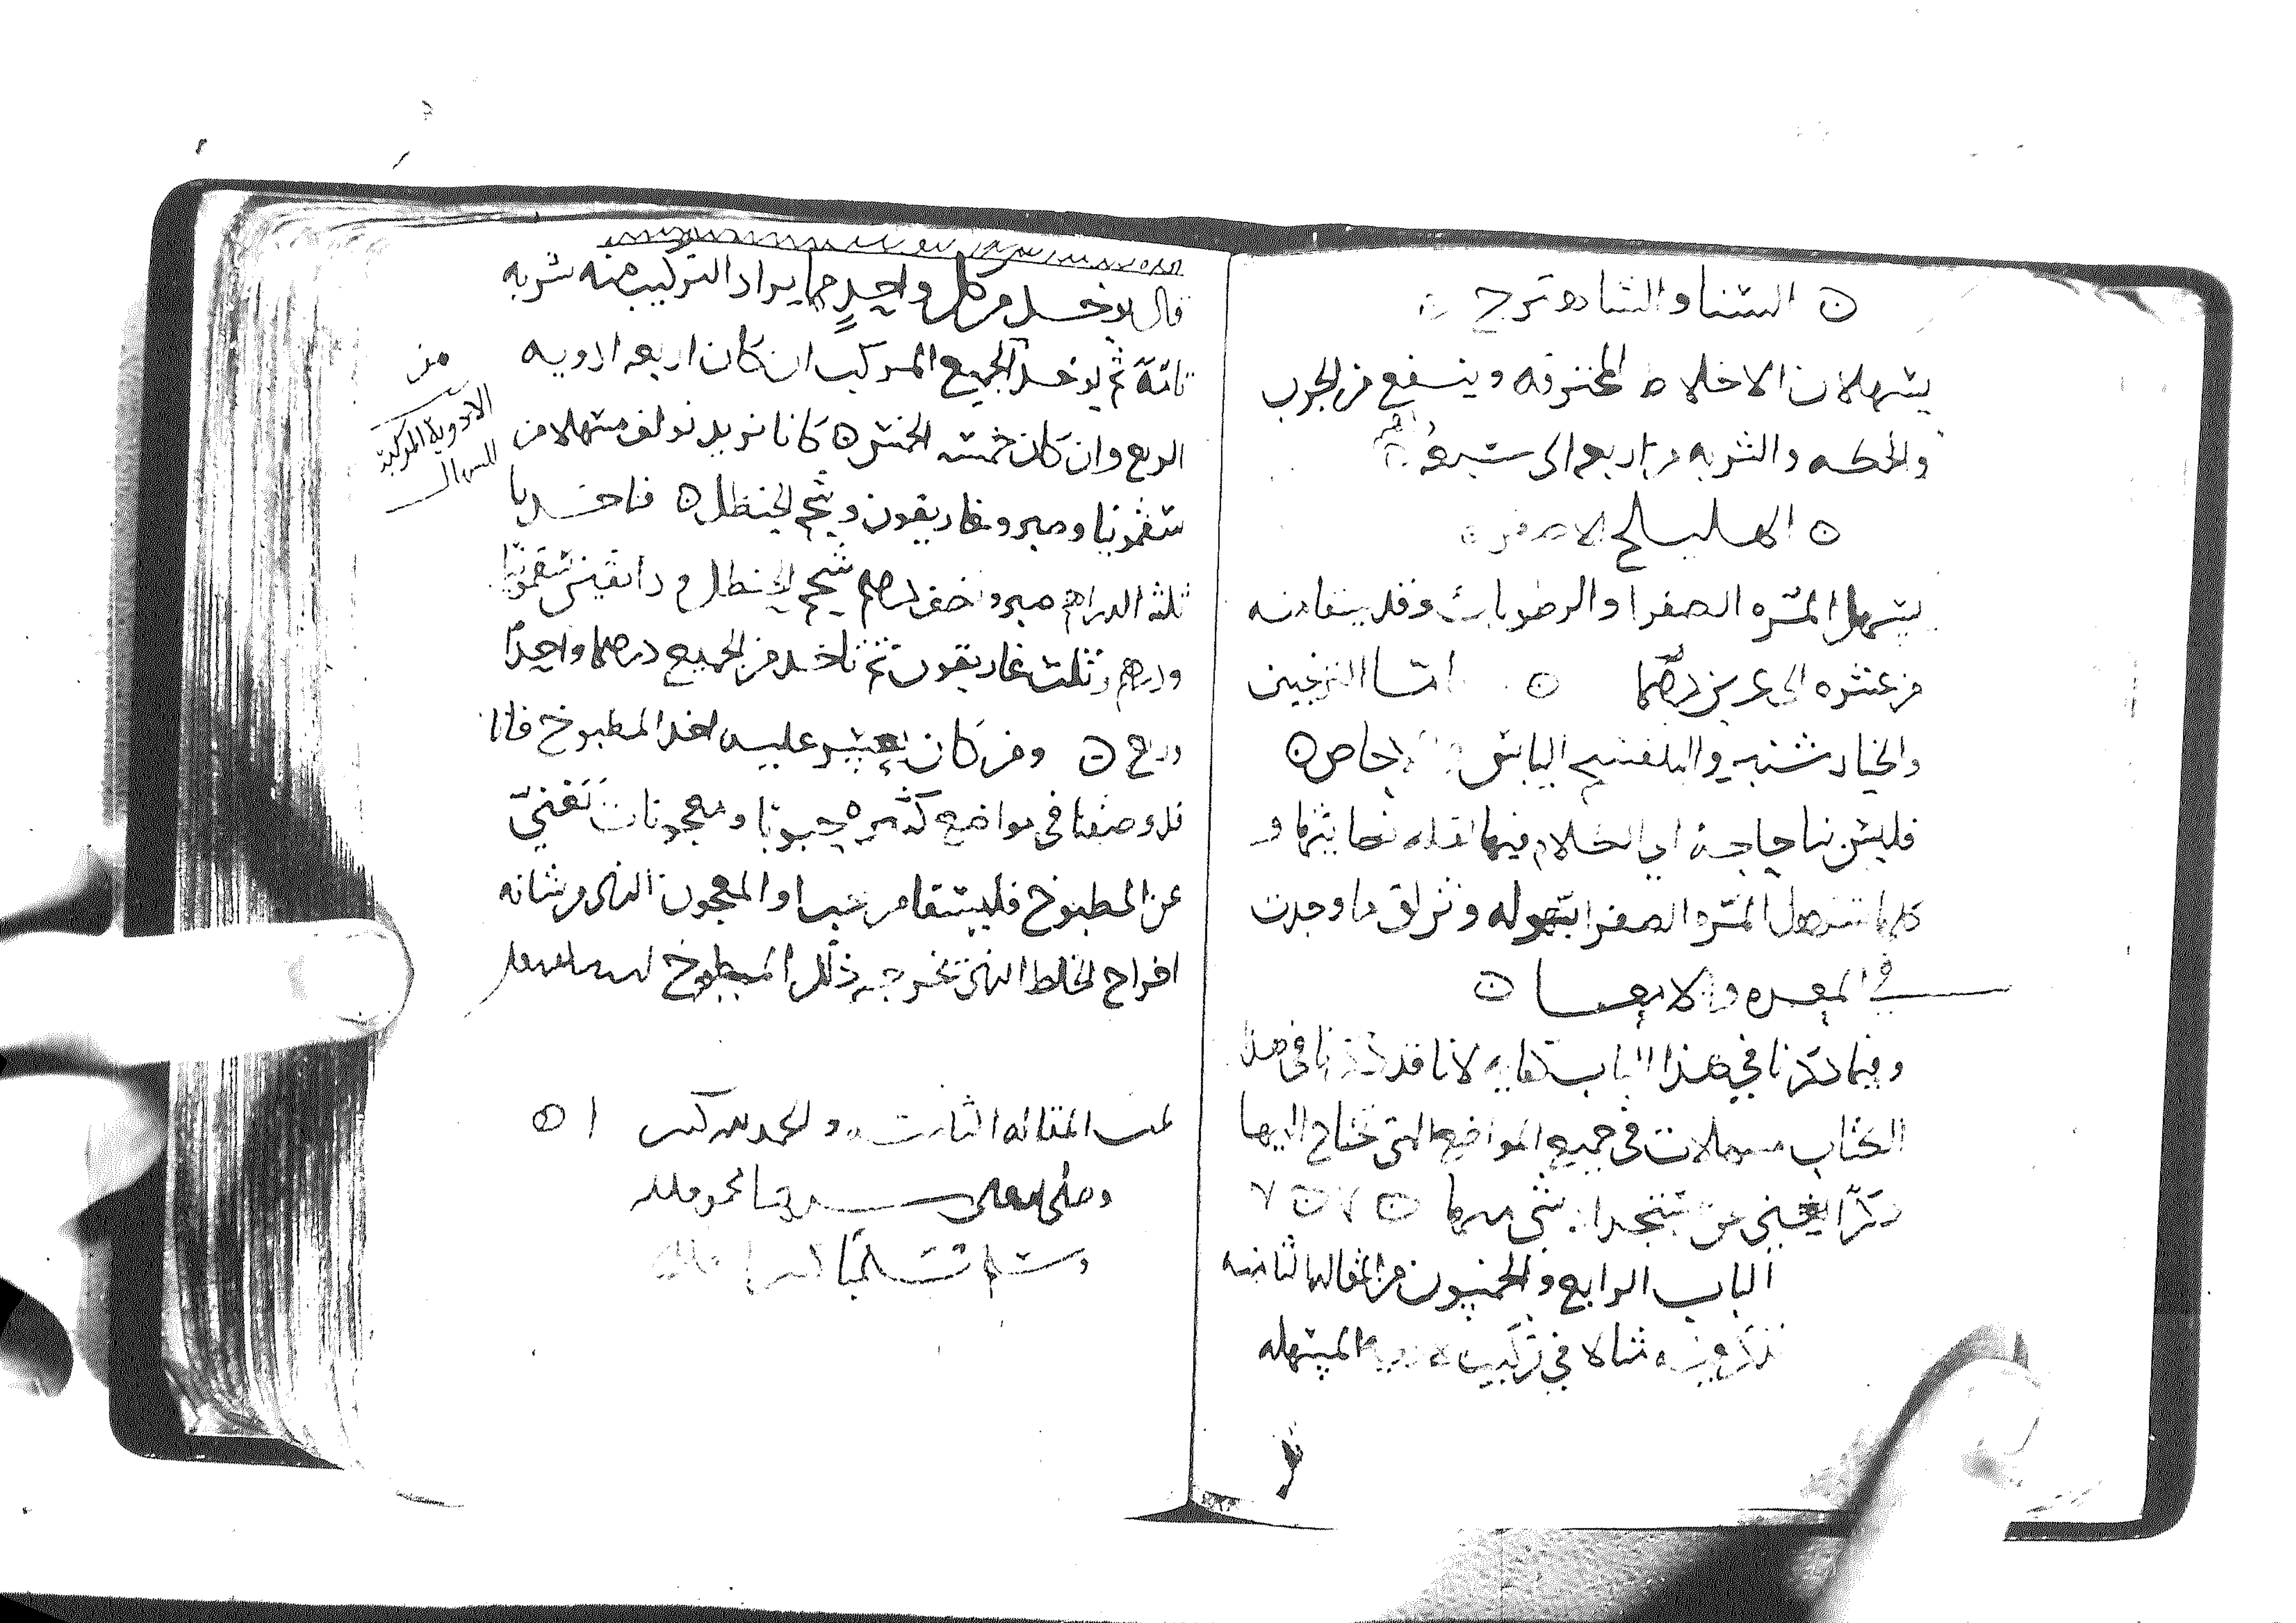 السنا والشاهترج
يسهلان الاخلاط المحترقه وينفع من الجرب
والحكه والشربه من اربعه الى سبعه
الهليلج الاصفر
يسهل المره الصفرا والرطوبات وقد ينقا منه
من عشره الى عشرين درهما ٥ اما الترنجبين
والخيار شنبر والبنفسج اليابس والاجاص ٥
فليس بنا حاجة الى الكلام فيها لقله نكايتها و
كلها تسهل المره الصفرا بسهوله وتزلق ما وجدت
في المعده والامعا ٥
وفيما ذكرنا في هذا الباب كفايه لانا قد ذكرنا في هذا
الكتاب مسهلات في جميع المواضع التي تحتاج اليها
ذكرًا يغني عن شي منها ٥
الباب الرابع والخمسون من المقاله الثامنه
نذكر فيه مثالا في تركيب الادويه المسهله
قال يوخذ من كل واحدٍ مما يراد التركيب منه شربه
تامّة ثم يوخذ الجميع المركب ان كان اربعه ادويه
الربع وان كان خمسه الخمس ٥ كانا نريد نولف مسهلا من
سقمونيا وصبر وغاريقون وشحم الحنظل ٥ فناخذ
ثلثه الدراهم صبر ونصف درهم شحم الحنظل ودانقين سقمونيا
ودرهم وثلث غاريقون ثم ناخذ من الجميع درهما واحدًا
وربع ٥ ومن كان يعسر عليه اخذ المطبوخ فانا
قد وصفنا في مواضع كثيره حبوبا ومعجونات تغني
عن المطبوخ فليسقا من حبها والمعجون الذي من شانه
اخراج الخلط الذي تخرجه ذلك المطبوخ
تمت المقاله الثامنه والحمد لله كثيرا ٥
وصلى الله على سيدنا محمد واله
وسلم تسليما كثيرا
من
الادوية المركبة
للسهال